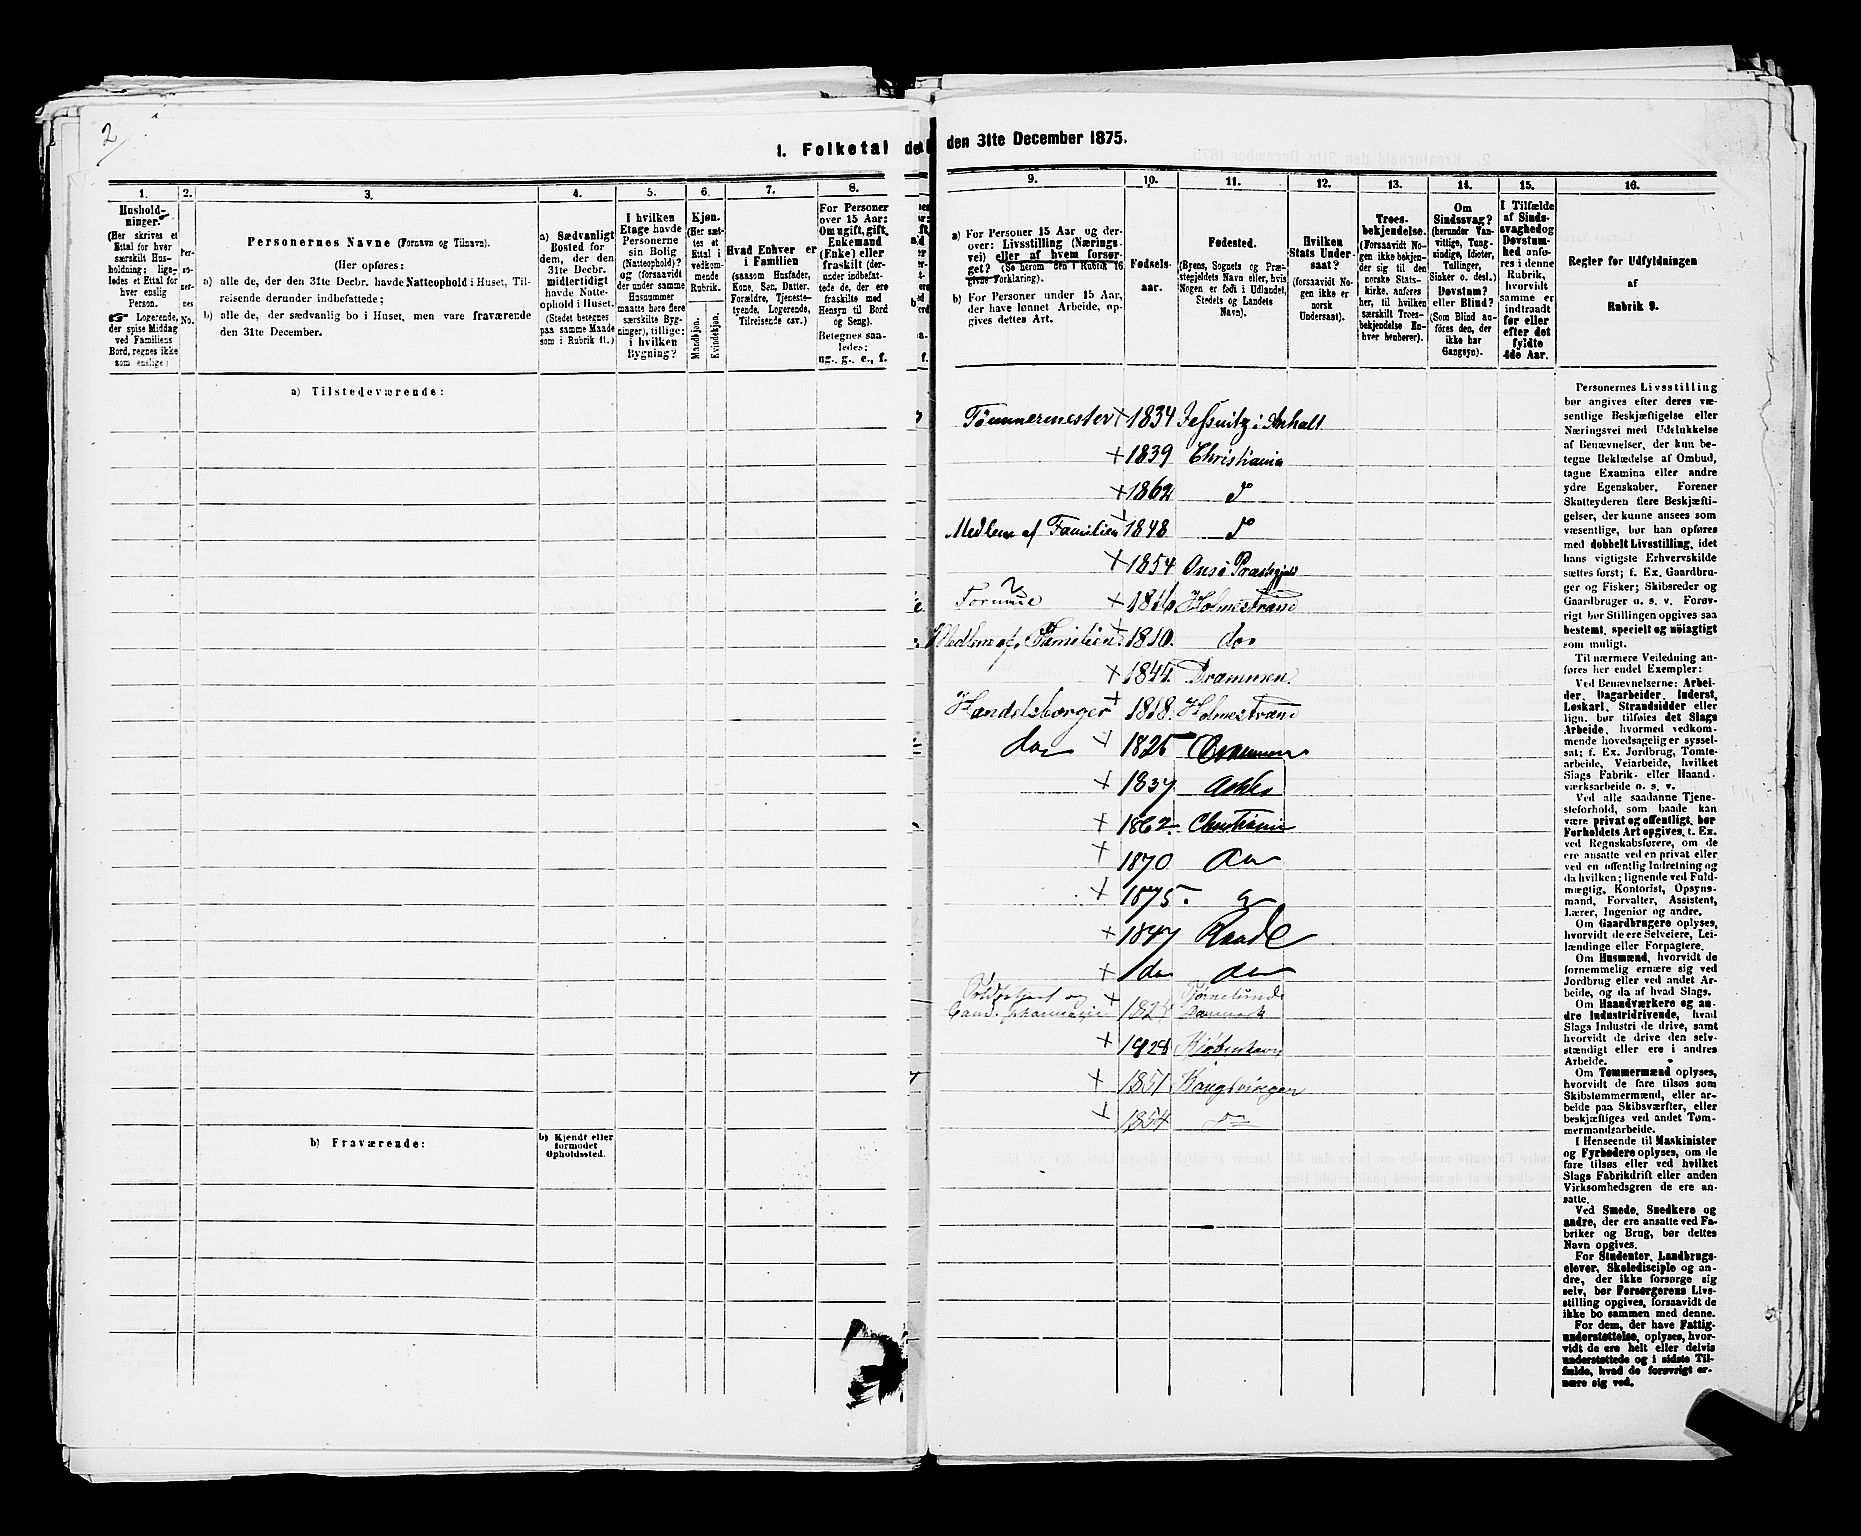 2
1. Folketal de
den 31te December 1875.
1.
2.
3.
4.
5.
6.
7.
8.
Hushold-
ninger.
(Her skrives et
Ettal for hver
særskilt Hus-
holdning; lige-
ledes et Ettal for
hver enslig
Person.
☞ Logerende,
der spise Middag
ved Familiens
Bord, regnes ikke
som enslige.)
Per-
so-
ner-
nes
No.
Personernes Navne (Fornavn og Tilnavn).
(Her opføres:
a) alle de, der den 31te Decbr. havde Natteophold i Huset, Til-
reisende derunder indbefattede;
b) alle de, der sædvanlig bo i Huset, men vare fraværende
den 31te December.
a) Sædvanligt
Bosted for
dem, der den
31te Decbr.
midlertidigt
havde Natte-
ophold i Huset.
(Stedet betegnes
paa samme Maade
som i Rubrik 11.)
I hvilken
Etage havde
Personerne
sin Bolig
(Natteophold)?
og (forsaavidt
der under samme
Husnummer
maatte høre flere
særskilte Byg-
ninger), tillige:
i hvilken
Bygning?
Kjøn.
(Her sæt-
tes et
Ettal i
vedkom-
mende
Rubrik.
Mandkjøn.
Kvindekjøn.
Hvad Enhver er
i Familien
(saasom Husfader,
Kone, Søn, Datter,
Forældre, Tjeneste-
tyende, Logerende,
Tilreisende osv.)
For Personer
over 15 Aar:
Om ugift, gift,
Enkemand
(Enke) eller
fraskilt (der-
under indbefat-
tede de, der ere
fraskilte med
Hensyn til Bord
og Seng).
Betegnes saa-
ledes:
ug., g., e., f.
a) Tilstedeværende:
b) Fraværende:
b) Kjendt eller
formodet
Opholdssted.
9.
10.
11.
12.
13.
14.
15.
16.
a) For Personer 15 Aar og der-
over: Livsstilling (Nærings-
vei) eller af hvem forsør-
get? (Se herom den i Rubrik 16
givne Forklaring).
b) For Personer under 15 Aar,
der have lønnet Arbeide, op-
gives dettes Art.
Fødsels-
aar.
Fødested.
(Byens, Sognets og Præ-
stegjeldets Navn eller, hvis
Nogen er født i Udlandet,
Stedets og Landets
Navn).
Hvilken
Stats Under-
saat?
(forsaavidt No-
gen ikke er
norsk
Undersaat).
Troes-
bekjendelse.
(Forsaavidt No-
gen ikke bekjen-
der sig til den
norske Stats-
kirke, anføres
her, til hvilken
særskilt Troes-
bekjendelse En-
hver henhører).
Om
Sindssvag?
(herunder Van-
vittige, Tung-
sindige, Idioter,
Tullinger,
Sinker o. desl.)
Døvstum?
eller Blind?
(Som Blind an-
føres den, der
ikke har
Gangsyn).
I Tilfælde
af Sinds-
svaghed og
Døvstum-
hed anfø-
res i denne
Rubrik,
hvorvidt
samme er
indtraadt
før eller
efter det
fyldte
4de Aar.
Regler for Udfyldningen
af
Rubrik 9.
Tömmermester × 1834 Jessnitz i Anhalt
× 1839 Christiania
× 1862
Medlem af Familien 1848
× 1854 Onsö Præstegjeld
× 1816 Holmestrand
Medlem af Familien 1810 do
× 1844 Drammen
Handelsborger 1818 Holmestrand
do 1825 Drammen
× 1837
× 1862 Christiania
× 1870 do
× 1875
× 1847 Raade
× do do
Cand. pharmacie Danmark
× 1828 Kjøbenhavn
× 1851 Kongsvinger
1854
Personernes Livsstilling
bør angives efter deres væ-
sentlige Beskjæftigelse eller
Næringsvei med Udelukkelse
af Benævnelser, der kun be-
tegne Beklædelse af Ombud,
tagne Examina eller andre
ydre Egenskaber. Forener
Skatteyderen flere Beskjæfti-
gelser, der kunne ansees som
væsentlige, bør han opføres
med dobbelt Livsstilling, idet
hans vigtigste Erhvervskilde
sættes først; f. Ex. Gaardbru-
ger og Fisker; Skibsreder og
Gaardbruger o. s. v. Forøv-
rigt bør Stillingen opgives saa
bestemt, specielt og nöiagtigt
som muligt.
Til nærmere Veiledning an-
føres her endel Exempler:
Ved Benævnelserne: Arbei-
der, Dagarbeider, Inderst,
Løskarl, Strandsidder eller
lign. bør tilføies det Slags
Arbeide, hvormed vedkom-
mende hovedsagelig er syssel-
sat; f. Ex. Jordbrug, Tomte-
arbeide, Veiarbeide, hvilket
Slags Fabrik- eller Haand-
værksarbeide o. s. v.
Ved alle saadanne Tjene-
steforhold, som baade kan
være privat og offentligt, bør
Forholdets Art opgives, t. Ex.
ved Regnskabsførere, om de
ere ansatte ved en privat eller
ved en offentlig Indretning og
da hvilken; lignende ved Fuld-
mægtig, Kontorist, Opsyns-
mand, Forvalter, Assistent,
Lærer, Ingeniør og andre.
Om Gaardbrugere oplyses,
hvorvidt de ere Selveiere, Lei-
lændinge eller Forpagtere.
Om Husmænd, hvorvidt de
fornemmelig ernære sig ved
Jordbrug eller ved andet Ar-
beide, og da af hvad Slags.
Om Haandværkere og an-
dre Industridrivende, hvad
Slags Industri de drive, samt
hvorvidt de drive den selv-
stændigt eller ere i andres
Arbeide.
Om Tømmermænd oplyses,
hvorvidt de fare tilsøs som
Skibstømmermænd, eller ar-
beide paa Skibsværfter, eller
beskjæftiges ved andet Tøm-
mermandsarbeide.
I Henseende til Maskinister
og Fyrbødere oplyses, om de
fare tilsøs eller ved hvilket
Slags Fabrikdrift eller anden
Virksomhedsgren de ere an-
satte.
Ved Smede, Snedkere og
andre, der ere ansatte ved Fa-
briker og Brug, bør dettes
Navn opgives.
For Studenter, Landbrugs-
elever, Skoledisciple og an-
dre, der ikke forsørge sig
selv, bør Forsørgerens Livs-
stilling opgives, forsaavidt de
ikke bo sammen med denne.
For dem, der have Fattig-
understøttelse, oplyses, hvor-
vidt de ere helt eller delvis
understøttede og i sidste Til-
fælde, hvad de forøvrigt er-
nære sig ved.